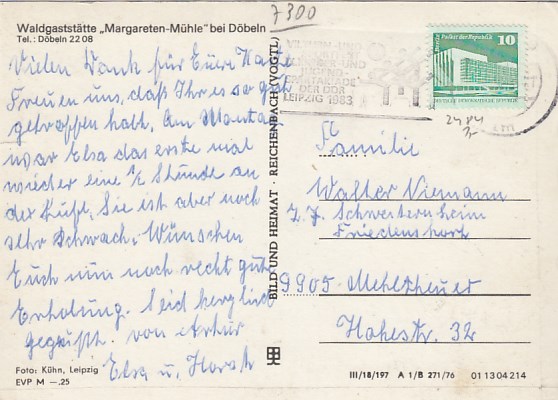 7300
Waldgaststätte „Margareten-Mühle" bei Döbeln
Tel.: Döbeln 22 08
Vielen Dank für Eure Karte
Freuen uns, daß Ihr es so gut
getroffen habt. Am Montag
war Elsa das erste mal
wieder eine 1/2 Stunde an
der Luft, Sie ist aber noch
sehr Schwach. Wünschen
Euch nun noch recht gute
Erholung. Seid herzlich
gegrüßt. von Artur
Elsa u. Horst
Foto: Kühn, Leipzig
EVP M –.25
BILD UND HEIMAT · REICHENBACH (VOGTL)
UND
JUGEND-
SPARTAKIADE
DER DDR
LEIPZIG 1983
Berlin, Palast der Republik
10
DEUTSCHE DEMOKRATISCHE REPUBLIK
Familie
Walter Niemann
z. Z. Schwesternheim
Friedenshort
9905 Mehltheuer
Hohestr. 32
III/18/197 A 1/B 271/76 01 13 04 214